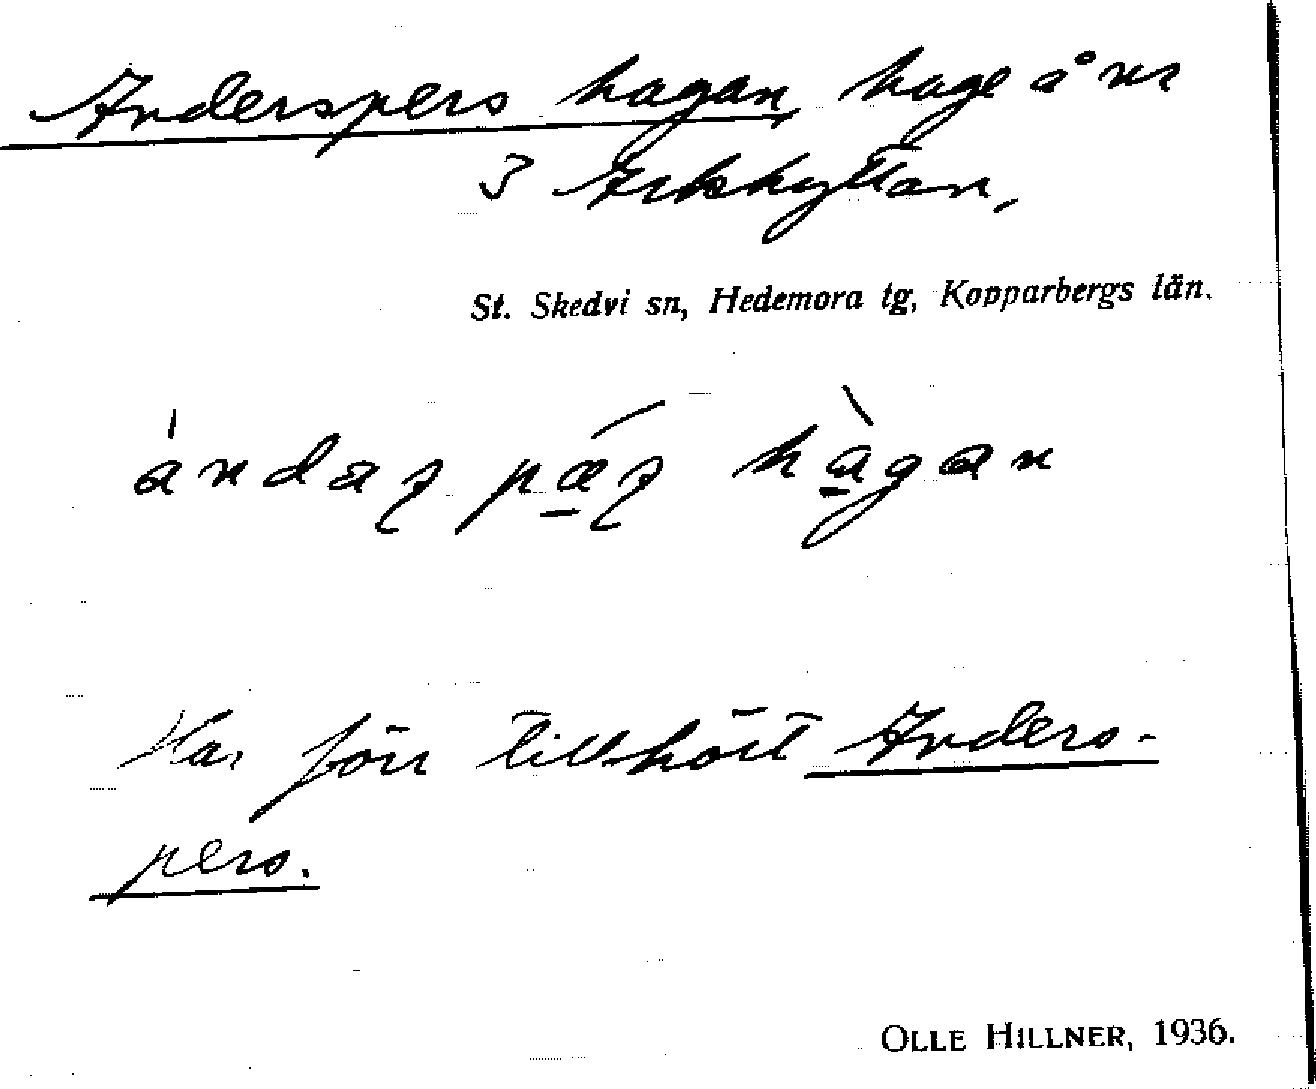 Anderspers hagan, hage å nr
3 Arkhyttan,
St. Skedvi sn, Hedemora tg, Kopparbergs län.
Har förr tillhört Anders-
pers.
OLLE HILLNER, 1936.